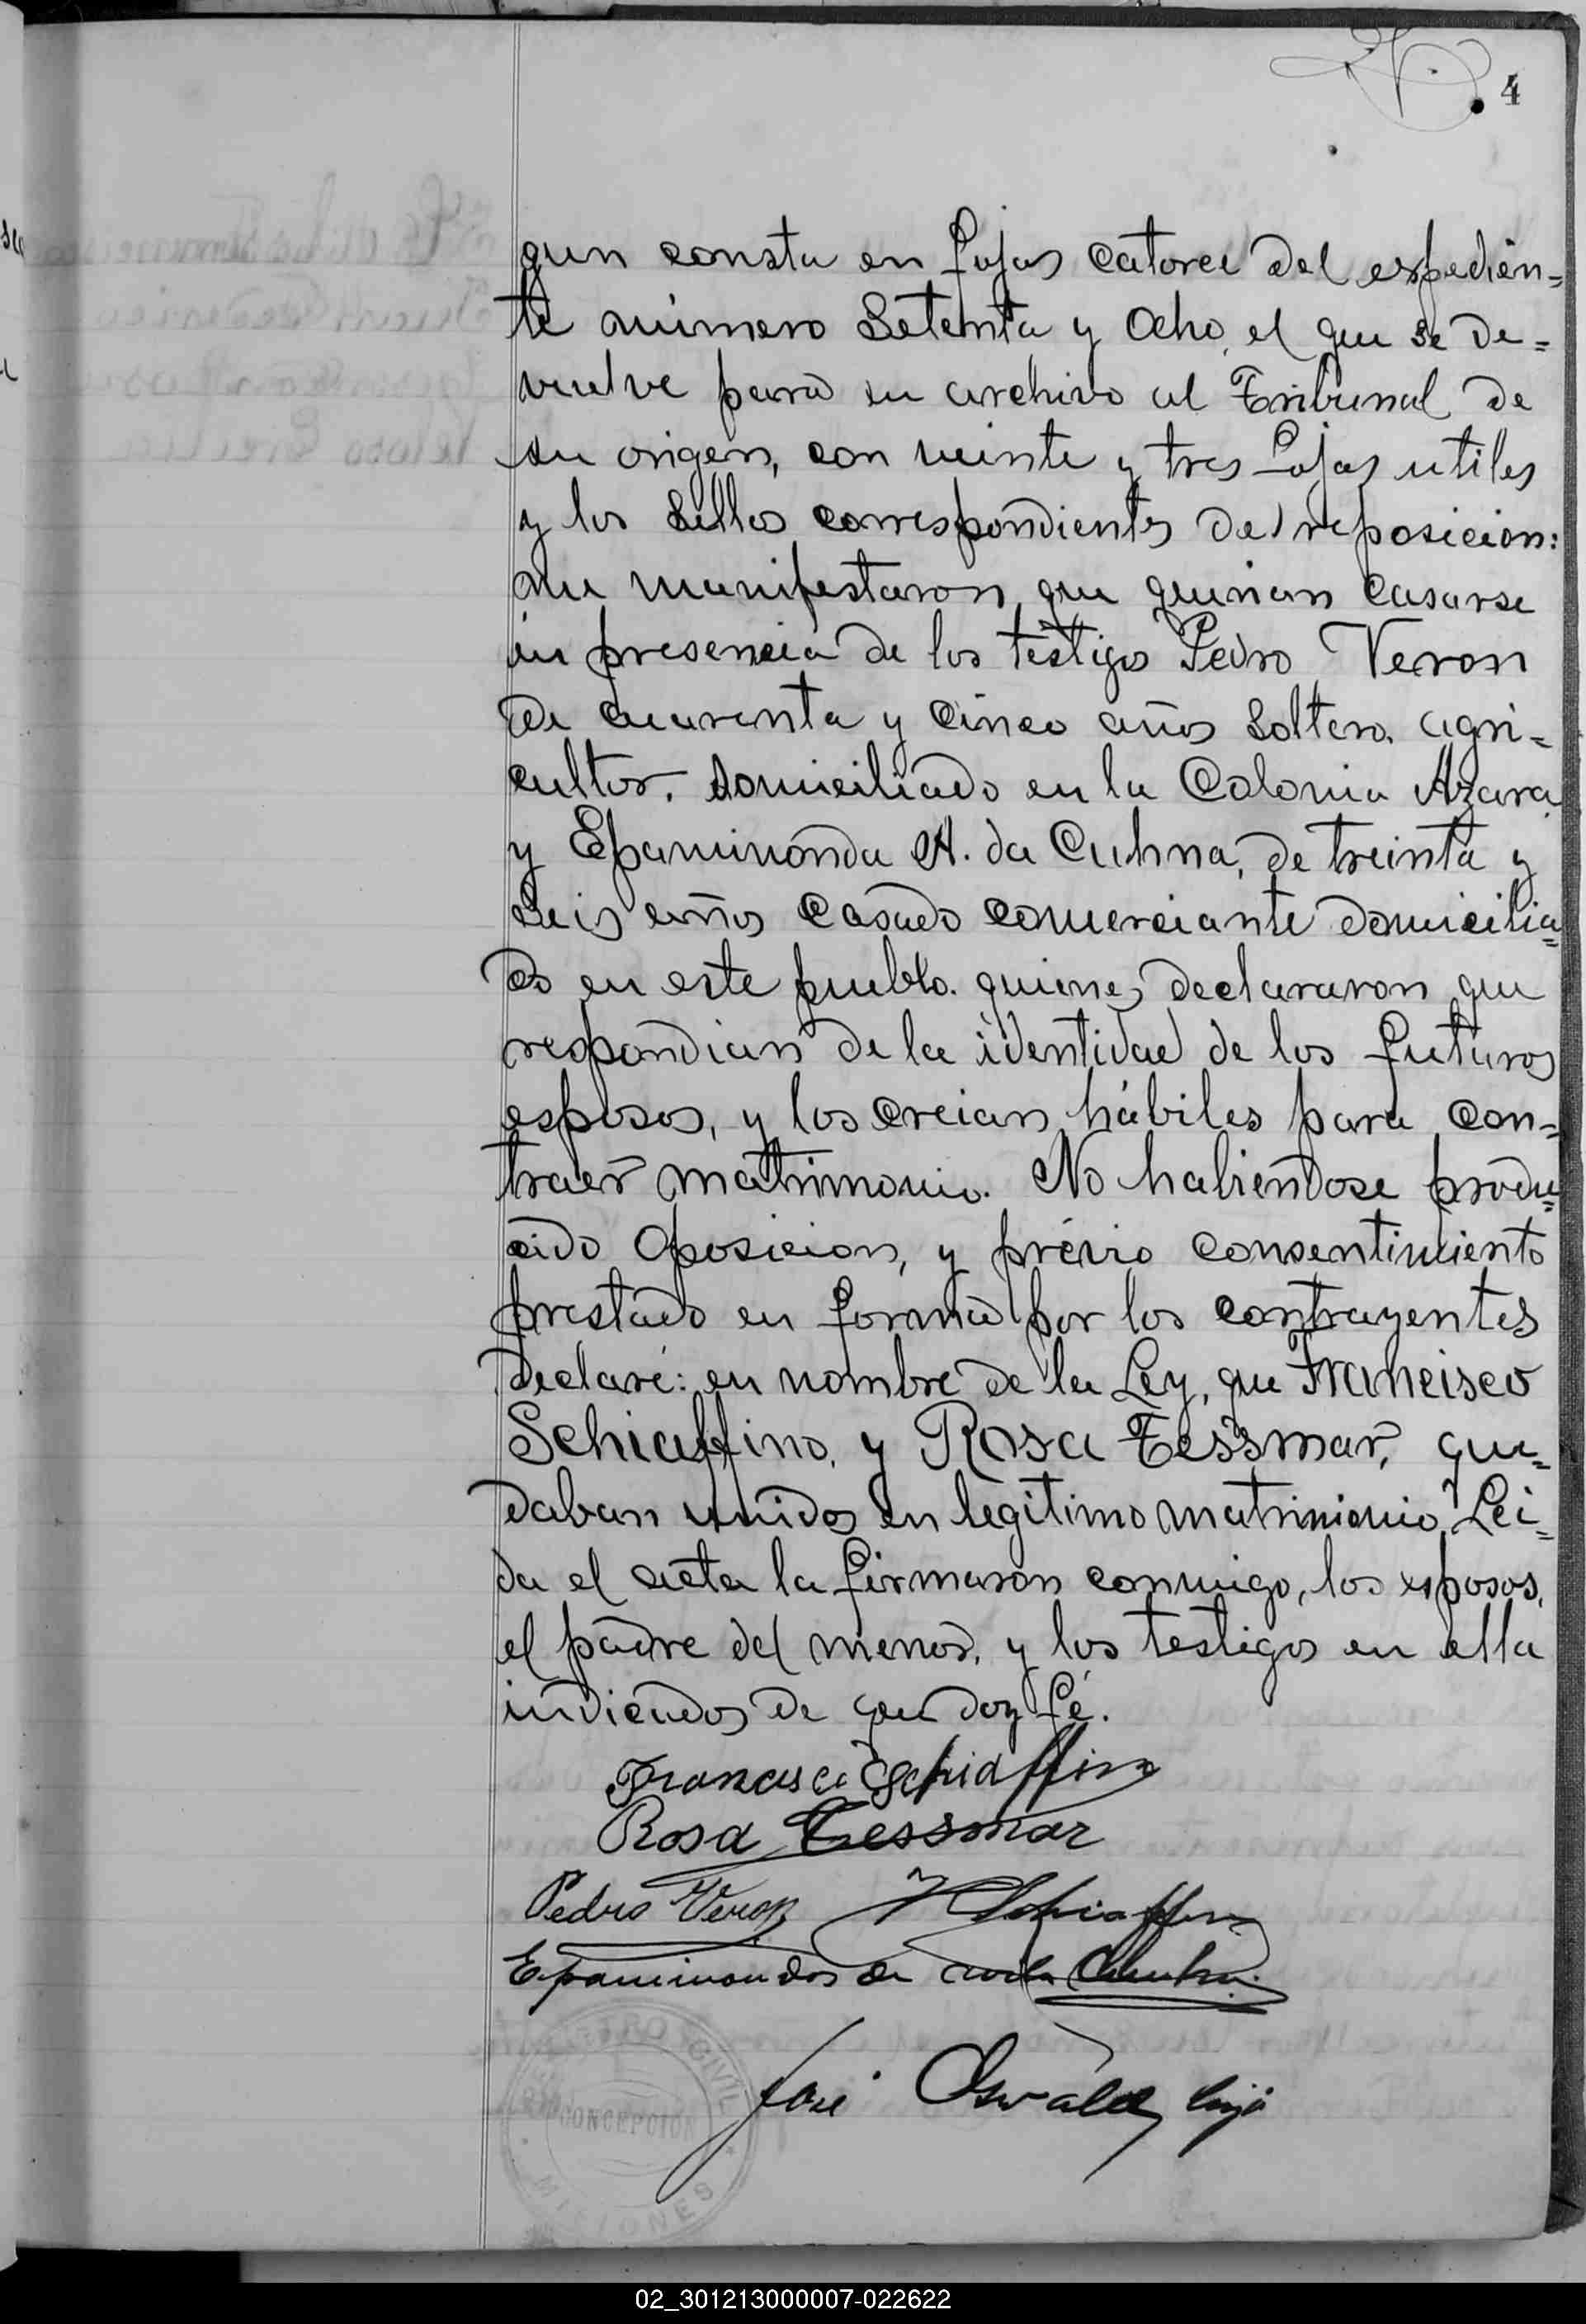 4
gun consta en fojas catorce del espedien=
te número Setenta y Ocho, el que se de=
vuelve para su archivo al Tribunal de
su origen, con veinte y tres fojas utiles
y los Sellos correspondientes de reposicion:
me manifestaron, que querian casarse
en presencia de los testigo Pedro Veron
de cuarenta y cinco años soltero, agri=
cultor, domiciliado en la Colonia Azara,
y Epaminonda A. da Cuhna, de treinta y
seis años casado comerciante domicilia=
do en este pueblo. quienes declararon que
respondian de la identidad de los futuros
esposos, y los creian hábiles para con=
traer matrimonio. No habiendose produ=
cido oposicion, y prévio consentimiento
prestado en forma por los contrayentes
declaré: en nombre de la Ley, que Francisco
Schiaffino, y Rosa Tessmar, que=
daban unidos en legitimo matrimonio, Lei=
da el acta la firmaron conmigo, los esposos,
el padre del menor, y los testigos en ella
indicados de que doy fé.
Francisco Schiaffino
Rosa Tessmar
Pedro Veron Schiaffino
Epaminondas da Cunha
José Oswald hijo
REGISTRO CIVIL
CONCEPCION
MISIONES
02_301213000007-022622